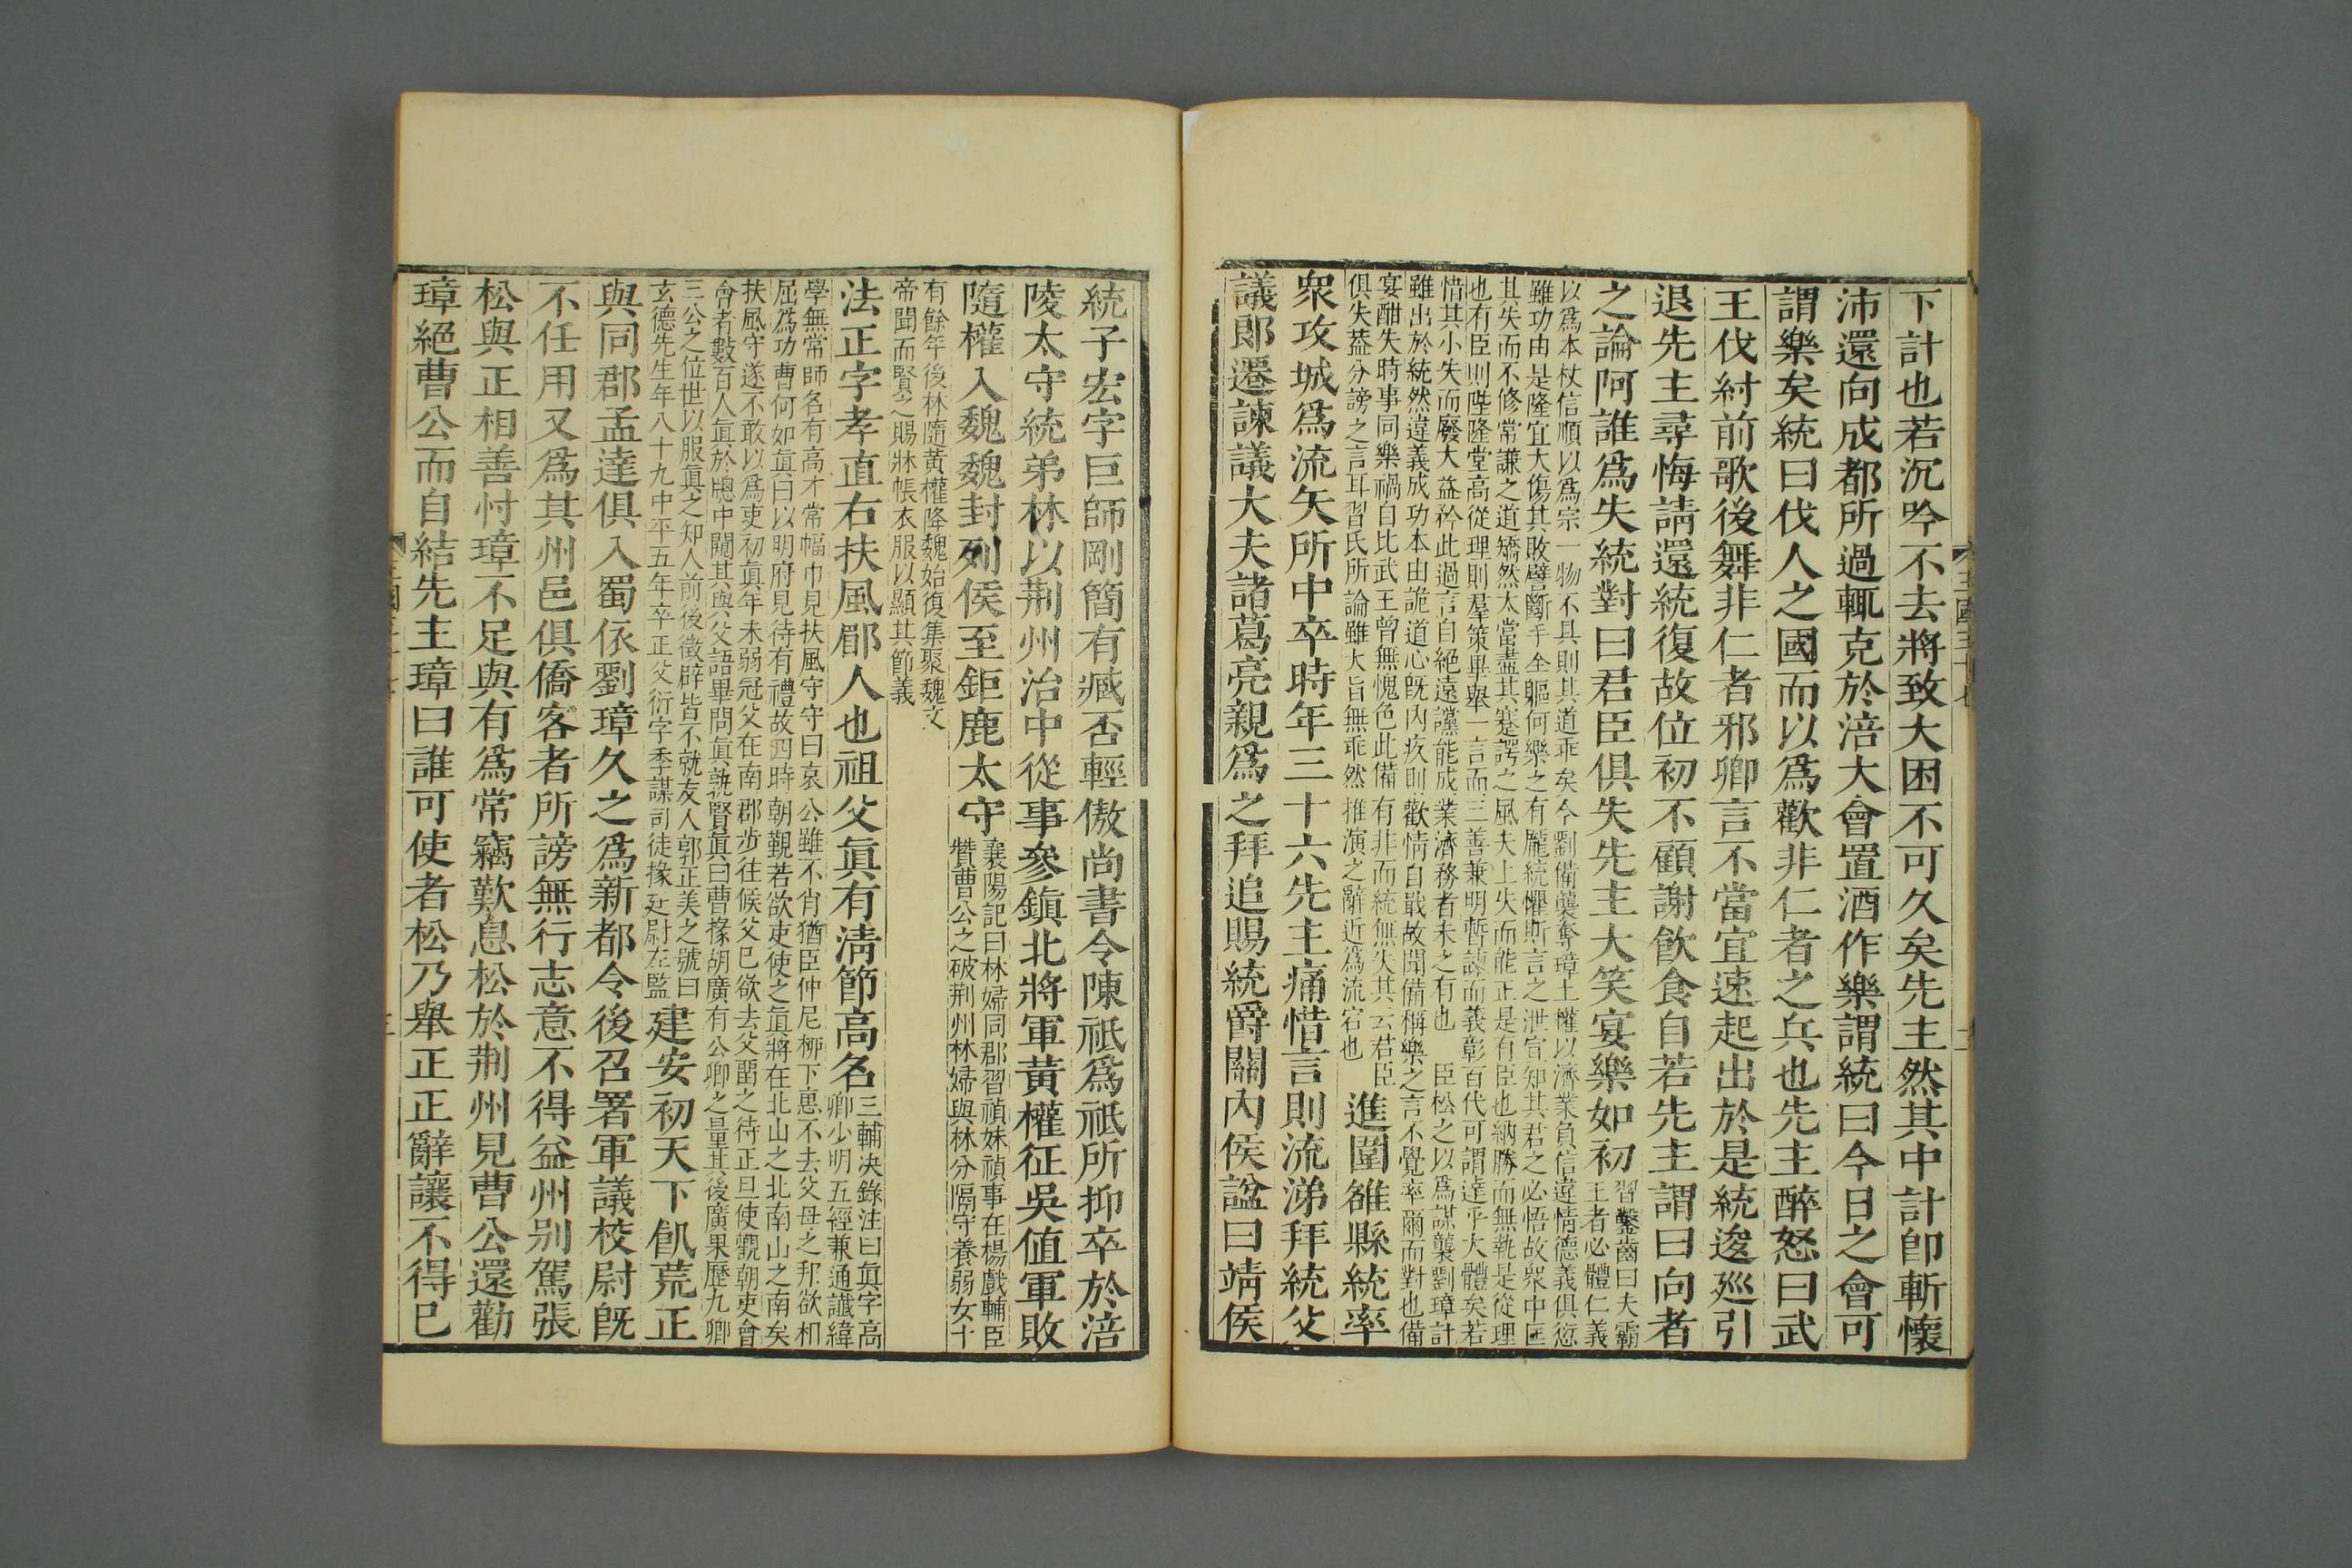 下計也若沉吟不去將致大困不可久矣先主然其中計卽斬懷
沛還向成都所過輒克於涪大會置酒作樂謂統曰今日之會可
謂樂矣統曰伐人之國而以爲歡非仁者之兵也先主醉怒曰武
王伐紂前歌後舞非仁者邪卿言不當宜速起出於是統逡廵引
退先主尋悔請還統復故位初不顧謝飮食自若先主謂曰向者
之論阿誰爲失統對曰君臣俱失先主大笑宴樂如初
習鑿齒曰夫霸
王者必體仁義
以爲本杖信順以爲宗一物不具則其道乖矣今劉備襲奪璋土權以濟業負信違情德義俱愆
雖功由是隆宜大傷其敗譬斷手全軀何樂之有龐統懼斯言之泄宣知其君之必悟故衆中匡
其失而不修常謙之道矯然太當盡其蹇諤之風夫上失而能正是有臣也納勝而無執是從理
也有臣則陛隆堂高從理則羣策畢舉一言而三善兼明暫諫而義彰百代可謂達乎大體矣若
惜其小失而廢大益矜此過言自絕遠讜能成業濟務者未之有也 臣松之以爲謀襲劉璋計
雖出於統然違義成功本由詭道心旣內疚則歡情自戢故聞備稱樂之言不覺率爾而對也備
宴酣失時事同樂禍自比武王曾無愧色此備有非而統無失其云君臣
俱失葢分謗之言耳習氏所論雖大旨無乖然推演之辭近爲流宕也
進圍雒縣統率
衆攻城爲流矢所中卒時年三十六先主痛惜言則流涕拜統父
議郎遷諫議大夫諸葛亮親爲之拜追賜統爵關內侯諡曰靖侯
統子宏字巨師剛簡有臧否輕傲尚書令陳祗爲祗所抑卒於涪
陵太守統弟林以荆州治中從事參鎮北將軍黃權征吳值軍敗
隨權入魏魏封列侯至鉅鹿太守
襄陽記曰林婦同郡習禎妹禎事在楊戲輔臣
贊曹公之破荆州林婦與林分隔守養弱女十
有餘年後林隨黃權降魏始復集聚魏文
帝聞而賢之賜牀帳衣服以顯其節義
法正字孝直右扶風郿人也祖父眞有淸節高名
三輔决錄注曰眞字高
卿少明五經兼通讖緯
學無常師名有高才常幅巾見扶風守守曰哀公雖不肖猶臣仲尼栁下惠不去父母之邦欲相
屈爲功曹何如眞曰以明府見待有禮故四時朝覲若欲吏使之眞將在北山之北南山之南矣
扶風守遂不敢以爲吏初眞年未弱冠父在南郡步往候父已欲去父畱之待正旦使觀朝吏會
會者數百人眞於牕中闚其與父語畢問眞孰賢眞曰曹掾胡廣有公卿之量其後廣果歷九卿
三公之位世以服眞之知人前後徵辟皆不就友人郭正美之號曰
玄德先生年八十九中平五年卒正父衍字季謀司徒掾廷尉左監
建安初天下飢荒正
與同郡孟達俱入蜀依劉璋久之爲新都令後召署軍議校尉旣
不任用又爲其州邑俱僑客者所謗無行志意不得益州别駕張
松與正相善忖璋不足與有爲常竊歎息松於荆州見曹公還勸
璋絕曹公而自結先主璋曰誰可使者松乃舉正正辭讓不得已